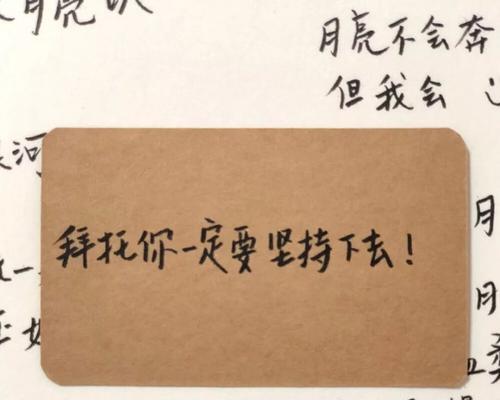 月亮
月亮不会奔
但我会
河
拜托你一定要坚持下去！
月
月